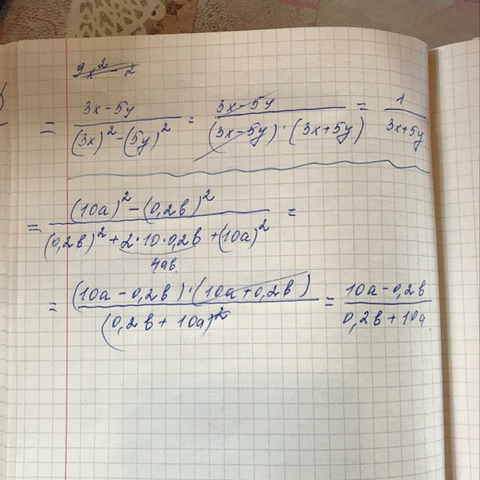 9x² - 2
= 3x-5y / (3x)² - (5y)² = 3x-5y / (3x-5y)·(3x+5y) = 1 / 3x+5y
= (10a)² - (0,2b)² / (0,2b)² + 2·10·0,2b + (10a)² =
4ab
= (10a - 0,2b)·(10a+0,2b) / (0,2b + 10a)² = 10a - 0,2b / 0,2b + 10a